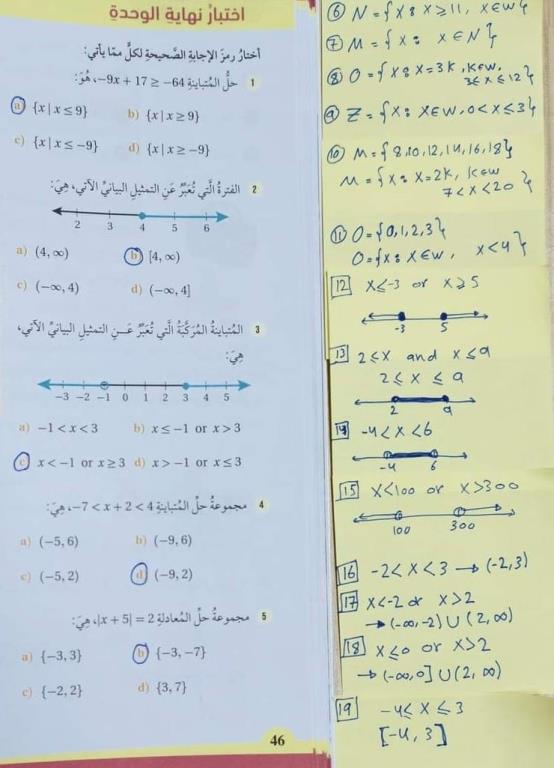 اختبار نهاية الوحدة
أختار رمز الإجابة الصَّحيحة لكلٍّ ممّا يأتي:
1 حلُّ المُتباينة −9x + 17 ≥ −64، هُوَ:
a) {x | x ≤ 9} b) {x | x ≥ 9}
c) {x | x ≤ −9} d) {x | x ≥ −9}
2 الفترةُ الَّتي تُعَبِّرُ عَنِ التمثيلِ البيانيِّ الآتي، هِيَ:
2 3 4 5 6
a) (4, ∞) b) [4, ∞)
c) (−∞, 4) d) (−∞, 4]
3 المُتباينةُ المُرَكَّبَةُ الَّتي تُعَبِّرُ عَـــنِ التمثيلِ البيانيِّ الآتي،
هِيَ:
−3 −2 −1 0 1 2 3 4 5
a) −1 < x < 3 b) x ≤ −1 or x > 3
c) x < −1 or x ≥ 3 d) x > −1 or x ≤ 3
4 مجموعةُ حلِّ المُتباينةِ −7 < x + 2 < 4، هِيَ:
a) (−5, 6) b) (−9, 6)
c) (−5, 2) d) (−9, 2)
5 مجموعةُ حلِّ المُعادلةِ |x + 5| = 2، هِيَ:
a) {−3, 3} b) {−3, −7}
c) {−2, 2} d) {3, 7}
46
⑥ N = {x: x ≥ 11, x∈W}
⑦ M = {x: x∈N}
⑧ O = {x: x = 3k, k∈W,
3 ≤ x ≤ 12}
⑨ Z = {x: x∈W, 0 < x ≤ 3}
⑩ M = {8, 10, 12, 14, 16, 18}
M = {x: x = 2k, k∈W
7 < x < 20}
⑪ O = {0, 1, 2, 3}
O = {x: x∈W, x < 4}
12 x ≤ -3 or x ≥ 5
-3 5
13 2 ≤ x and x ≤ 9
2 ≤ x ≤ 9
2 9
14 -4 < x < 6
-4 6
15 x < 100 or x > 300
100 300
16 -2 < x < 3 → (-2, 3)
17 x < -2 or x > 2
→ (-∞, -2) ∪ (2, ∞)
18 x ≤ 0 or x > 2
→ (-∞, 0] ∪ (2, ∞)
19 -4 ≤ x ≤ 3
[-4, 3]